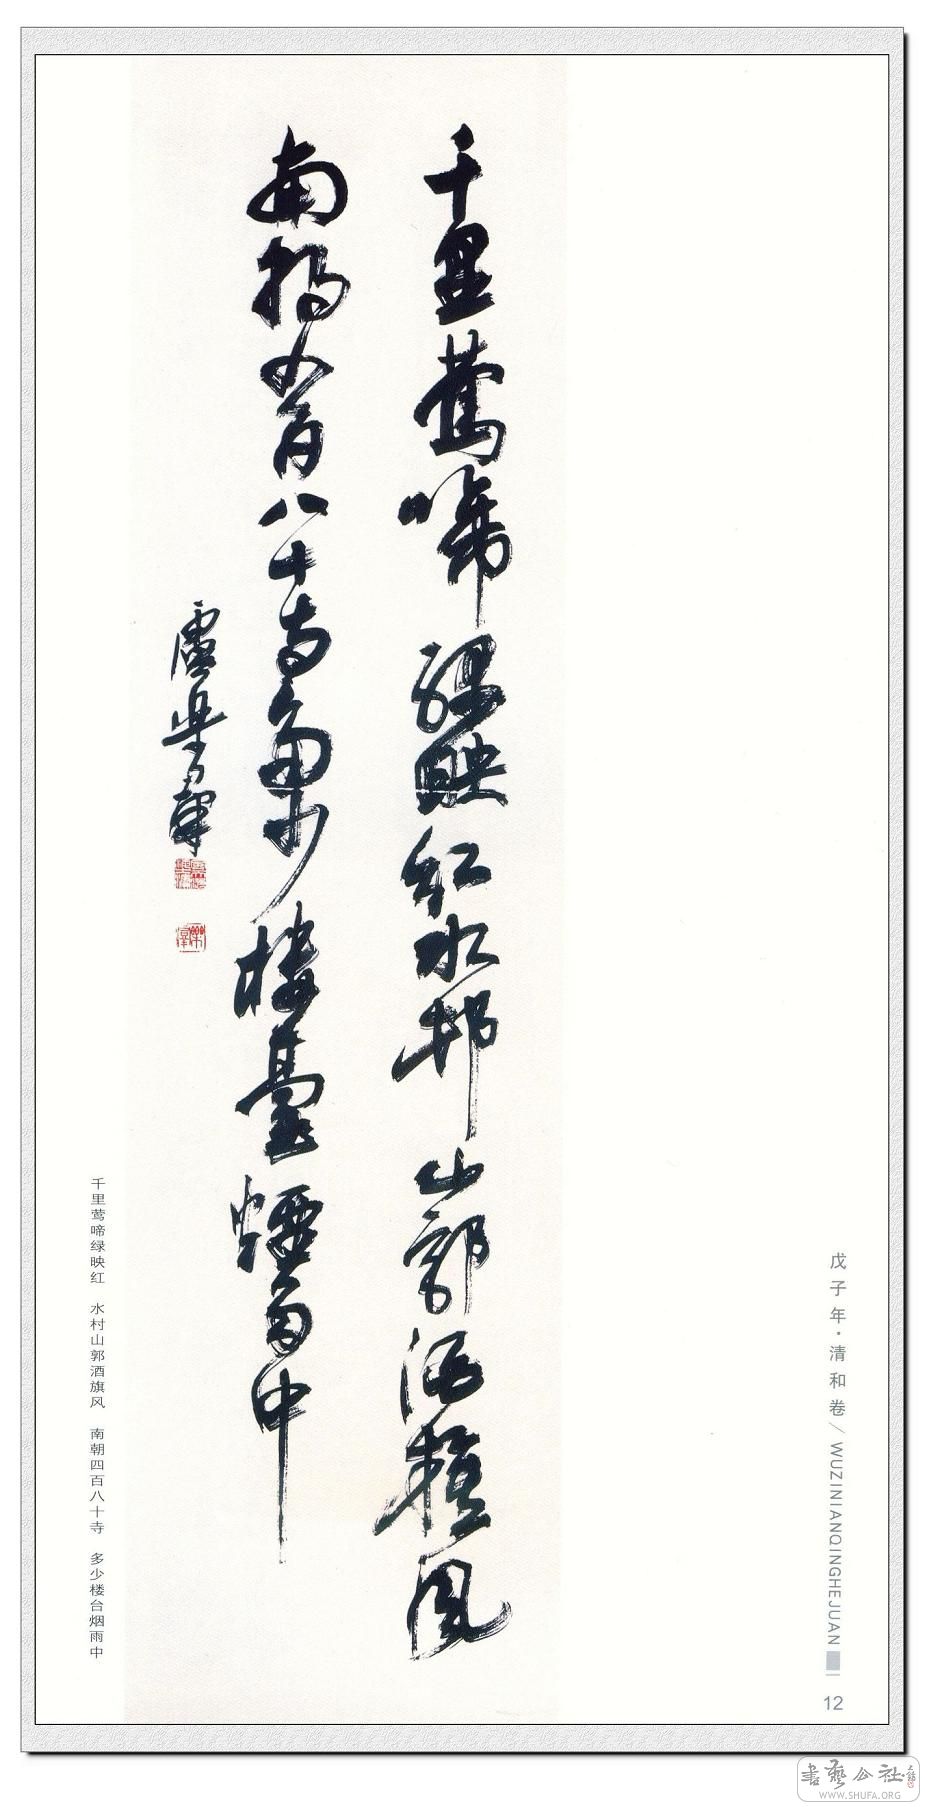 戊子年·清和卷/WUZINIANQINGHEJUAN
12
千里鶯啼緑映紅水邨山郭酒旗風
南朝四百八十寺多少樓臺煙雨中
盧樂群
千里莺啼绿映红 水村山郭酒旗风 南朝四百八十寺 多少楼台烟雨中
書藝公社
WWW.SHUFA.ORG